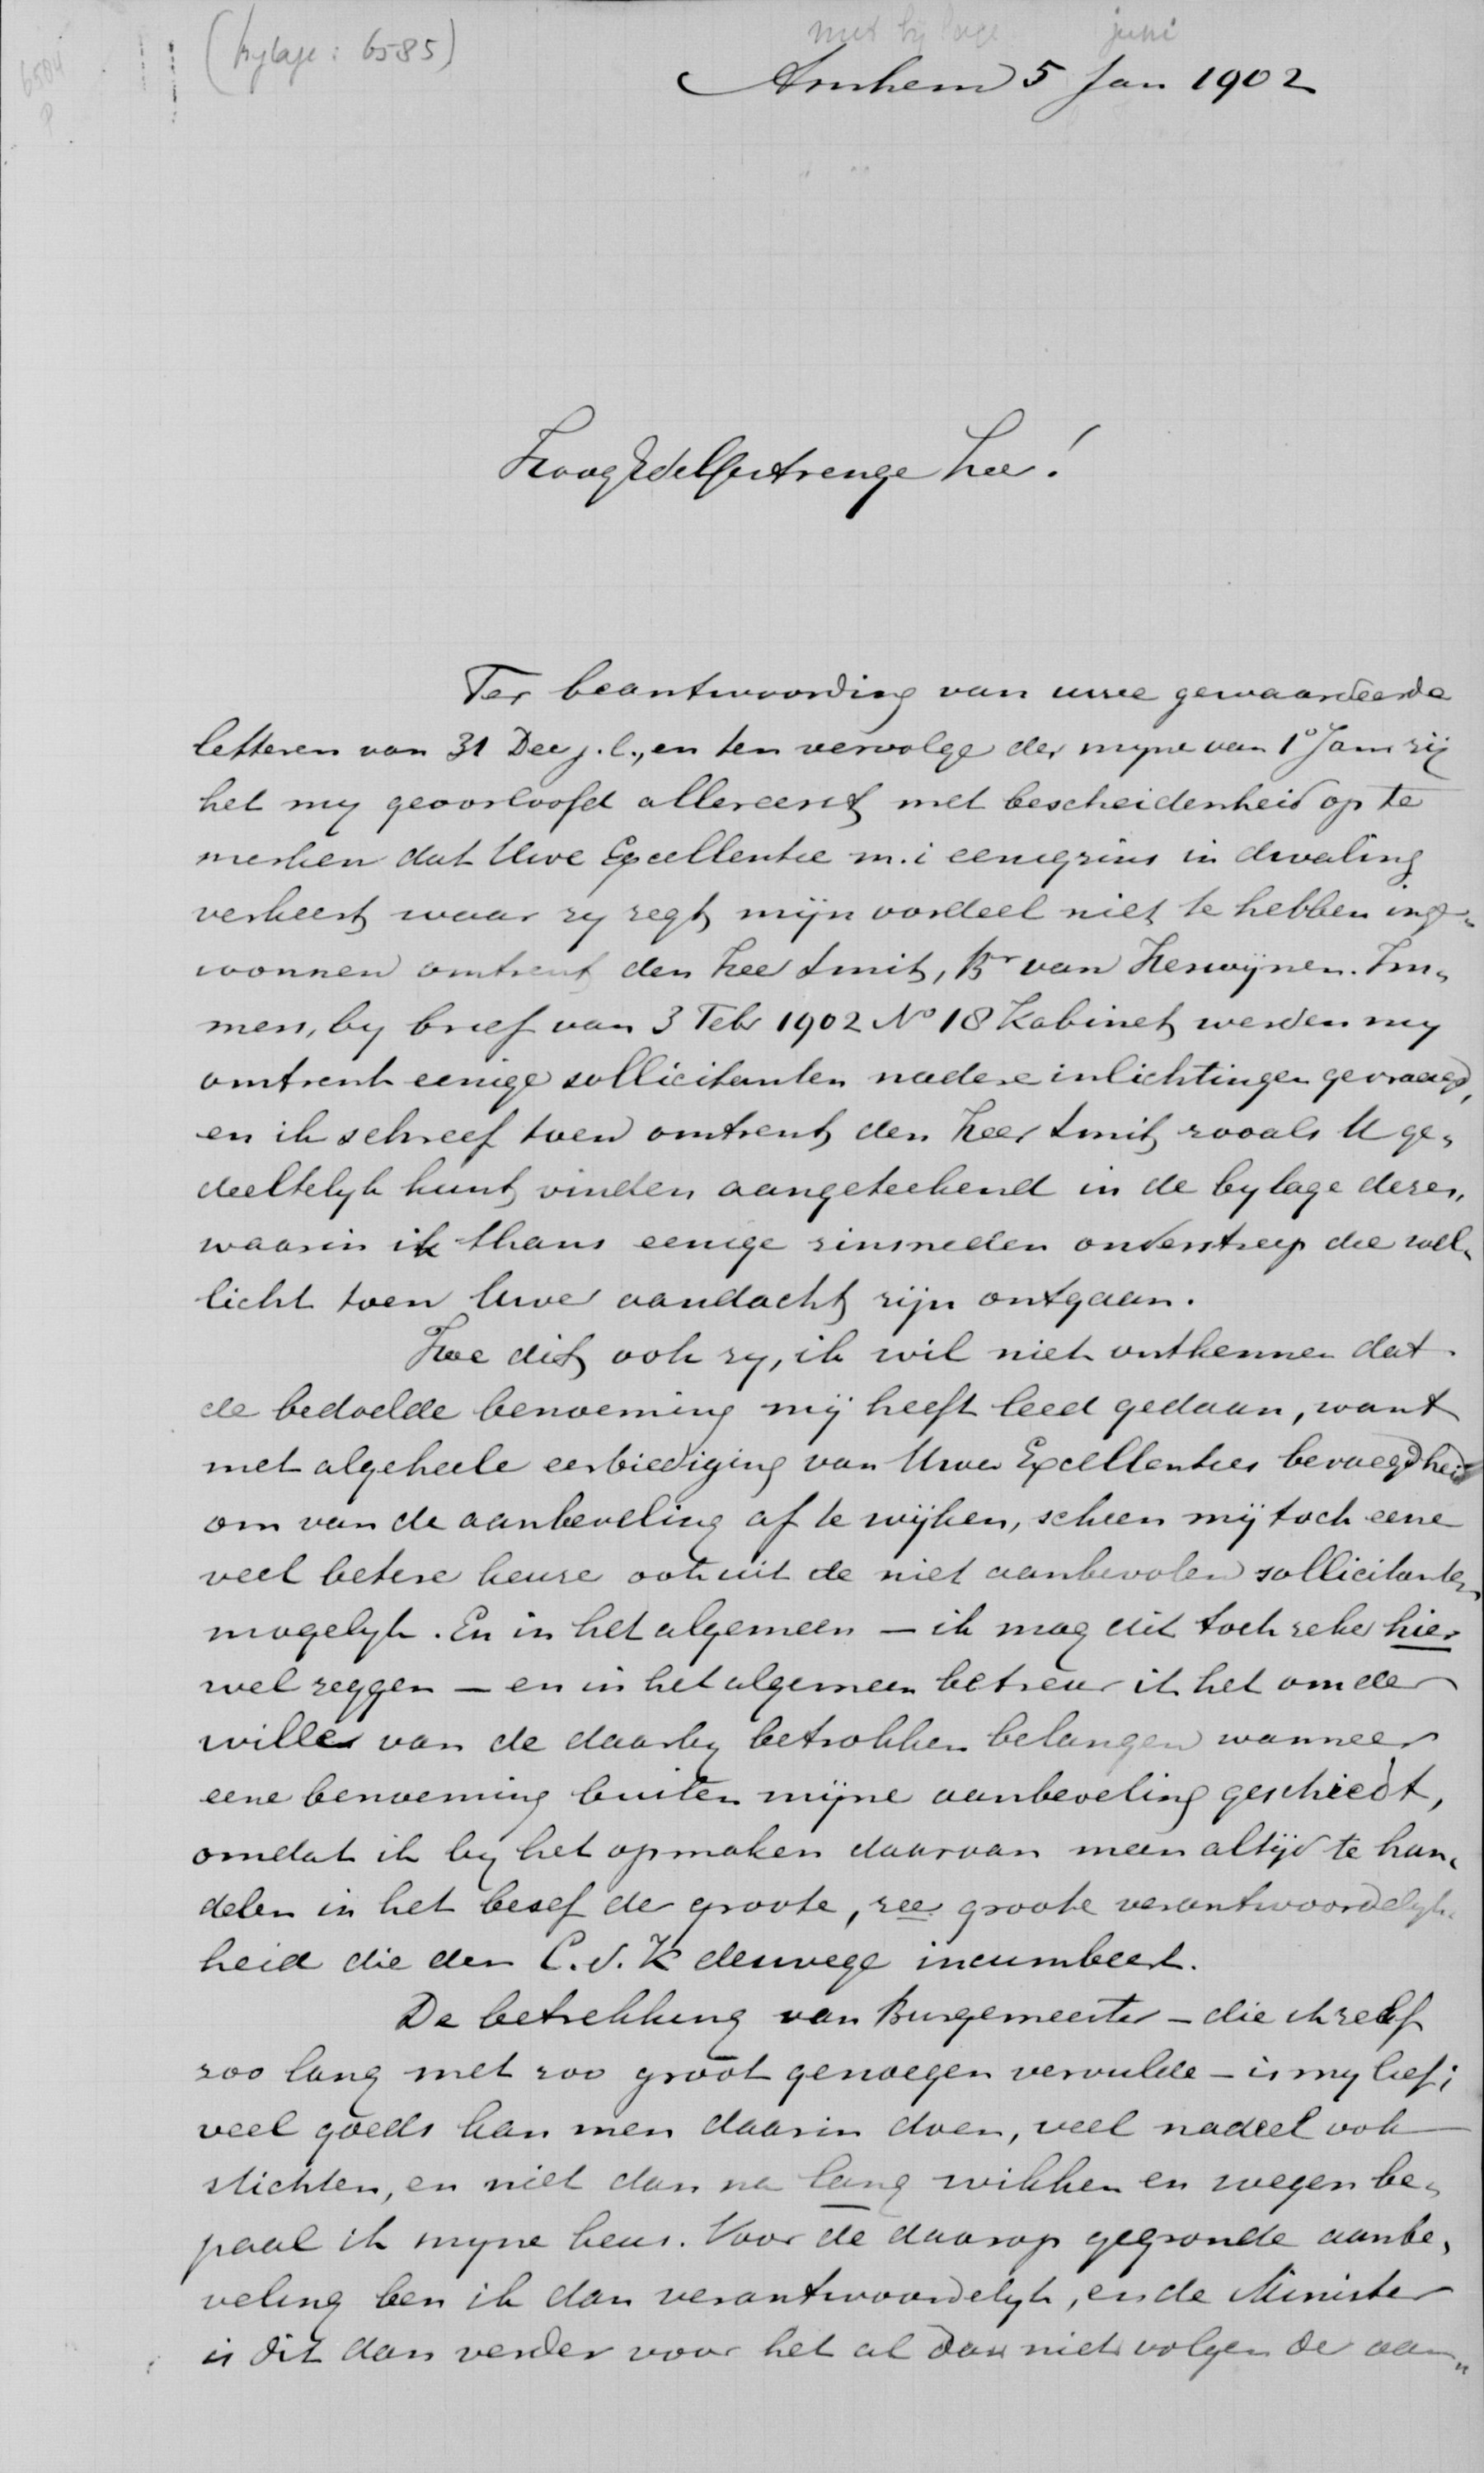 (bylage: 6585)
6584
met bylage juni
Arnhem 5 Jan 1902
HoogEdelGestrenge Heer!
Ter beantwoording van uwe gewaardeerde
letteren van 31 Dec j.l., en ten vervolge der myne van 1° Jan zij
het my geoorloofd allereerst met bescheidenheid op te
merken dat Uwe Excellentie m.i eenigzins in dwaling
verkeert waar zy zegt mijn oordeel niet te hebben inge-
wonnen omtrent den heer Smit, Br van Herwijnen. Im-
mers, by brief van 3 Febr 1902 No 18 Kabinet werden my
omtrent eenige sollicitanten nadere inlichtingen gevraagd,
en ik schreef toen omtrent den heer Smit zooals U ge-
deeltelyk kunt vinden aangeteekend in de bylage dezer,
waarin ik thans eenige zinsneden onderstreep die wel-
licht toen Uwe aandacht zijn ontgaan.
Hoe dit ook zy, ik wil niet ontkennen dat
de bedoelde benoeming mij heeft leed gedaan, want
met algeheele eerbiediging van Uwer Excellenties bevoegdheid
om van de aanbeveling af te wijken, scheen mij toch eene
veel betere keuze ook uit de niet aanbevolen sollicitanten
mogelyk. En in het algemeen - ik mag dit toch zeker hier
wel zeggen - en in het algemeen betreur ik het om der
wille van de daarby betrokken belangen wanneer
eene benoeming buiten mijne aanbeveling geschiedt,
omdat ik by het opmaken daarvan meen altijd te han-
delen in het besef der groote, zeer groote verantwoordelyk-
heid die den C.d.K deswege incumbeert.
De betrekking van Burgemeester - die ik zelf
zoo lang met zoo groot genoegen vervulde - is my lief;
veel goeds kan men daarin doen, veel nadeel ook
stichten, en niet dan na lang wikken en wegen be-
paal ik myne keus. Voor de daarop gegronde aanbe-
veling ben ik dan verantwoordelyk, en de Minister
is dit dan verder voor het al dan niet volgen der aan-